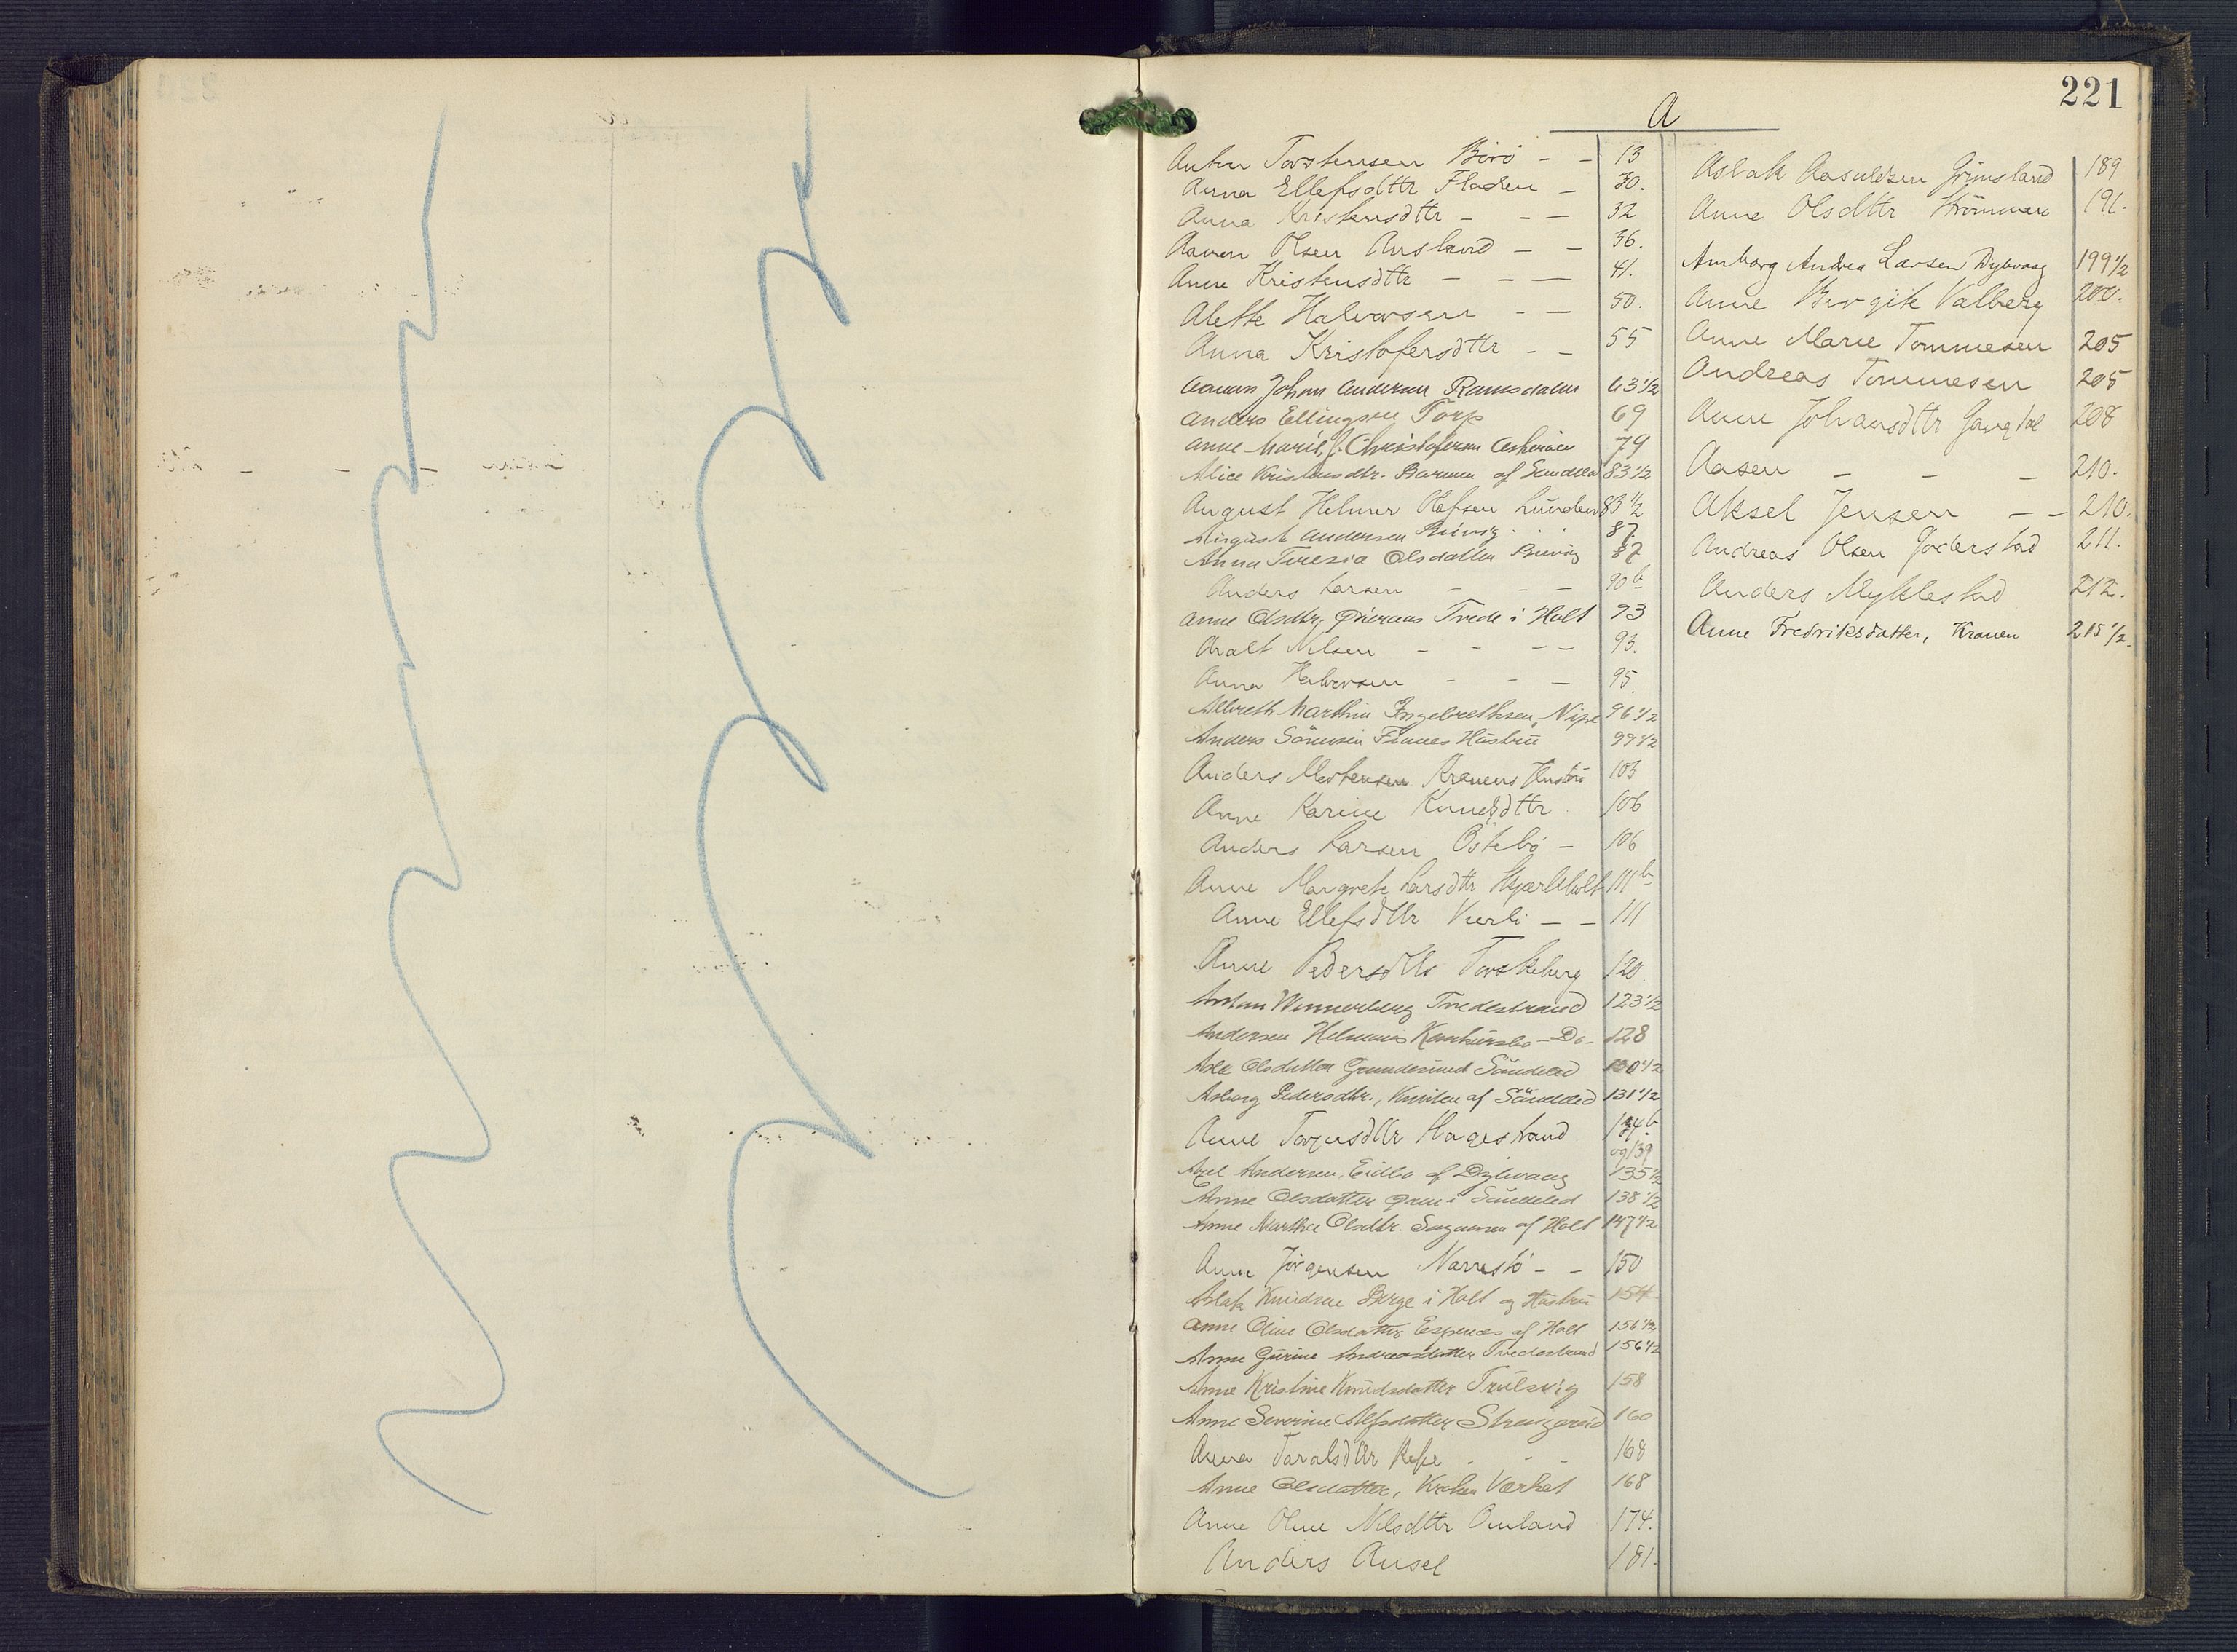 221
A
Anton Torstensen Börö - - 13
Anna Ellefsdttr Fladen - 30.
Anna Kristensdttr - - - 32
Aanen Olsen Ausland - - 36.
Anne Kristensdttr - - - 41.
Alette Halvorsen - - 50.
Anna Kristofersdttr - - 55
Aanen Johan Andersen Ramsdalen 63 1/2
Anders Ellingsen Torp 69
Anne Marie J. Christofersen 79
Alice Kristensdtr. Barmen af Söndeled 83 1/2
August Helmer Olafsen Lunden 83 1/2
August Andersen 87.
Anna Teresia Olsdatter 87
Anders Larsen - - - 90 b
Anne Olsdtr. Tvede i Holt 93
Aralt Nilsen - - - - 93.
Anna Halvorsen - - - 95.
Albreth Marthin Ingebrethsen, Nipe 96 1/2
Anders Sörensen Finnes Hustru 99 1/2
Anders Mortensen Kranens Hustru 103
Anne Karine Knudsdttr 106
Anders Larsen Östebö - 106
Anne Margrete Larsdttr 111 b
Anne Ellefsdttr Vierli - - 111
Anne Pedersdttr Torskeberg 120.
Anton Wennerberg Tvedestrand 123 1/2
Andersen Helmers - Do - 128
Olsdatter Söndeled 130 1/2
Asborg Pedersdtr., af Söndeled 131 1/2
Anne Torjusdttr Hagestrand 134 b
og 139
Axel Andersen, Eidbo af Dybvaag 135 1/2
Anne Olsdatter i Söndeled 138 1/2
Anne Marthe Olsdtr. af Holt 147 1/2
Anne Jörgensen Narrestö - - 150
Aslak Knudsen Berge i Holt og Hustru 154
Anne Oline Olsdatter Espenes af Holt 156 1/2
Anne Gurine Andreasdatter Tvedestrand 156 1/2
Anne Kristine Knudsdatter Trulsvig 158
Anne Severine Alfsdatter Strengereid 160
Anna Taraldsdttr - - - 168
Anne Olsdatter, Værket 168
Anne Oline Nilsdttr Omland 174.
Anders Ausel 181.
Aslak Aasuldsen Grimsland 189
Anne Olsdttr Strömmen 191.
Amborg Andrea Larsen Dybvaag 199 1/2
Anne Birgite Valberg 200.
Anne Marie Tommesen 205
Andreas Tommesen 205
Anne Johansdttr 208
Aasen - - - 210.
Aksel Jensen - - 210.
Andreas Olsen Goderstad 211.
Anders Myklestad 212.
Anne Fredriksdatter, Kranen 215 1/2.